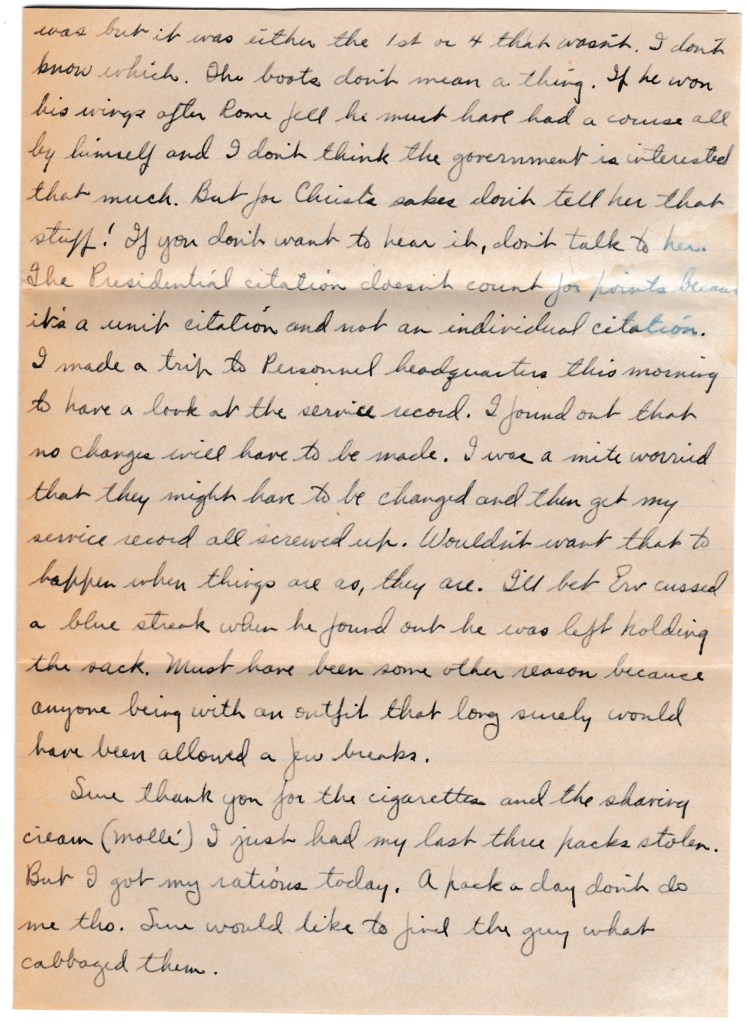 was but it was either the 1st or 4 that wasn't. I don't
know which. The boots don't mean a thing. If he won
his wings after Rome fell he must have had a course all
by himself and I don't think the government is interested
that much. But for Christs sakes don't tell her that
stuff! If you don't want to hear it, don't talk to her.
The Presidential citation doesn't count for points becaus
it's a unit citation and not an individual citation.
I made a trip to Personnel headquarters this morning
to have a look at the service record. I found out that
no changes will have to be made. I was a mite worried
that they might have to be changed and then get my
service record all screwed up. Wouldn't want that to
happen when things are as, they are. I'll bet Erv cussed
a blue streak when he found out he was left holding
the sack. Must have been some other reason because
anyone being with an outfit that long surely would
have been allowed a few breaks.
Sure thank you for the cigarettes and the shaving
cream (Mollé) I just had my last three packs stolen.
But I got my rations today. A pack a day don't do
me tho. Sure would like to find the guy what
cabbaged them.